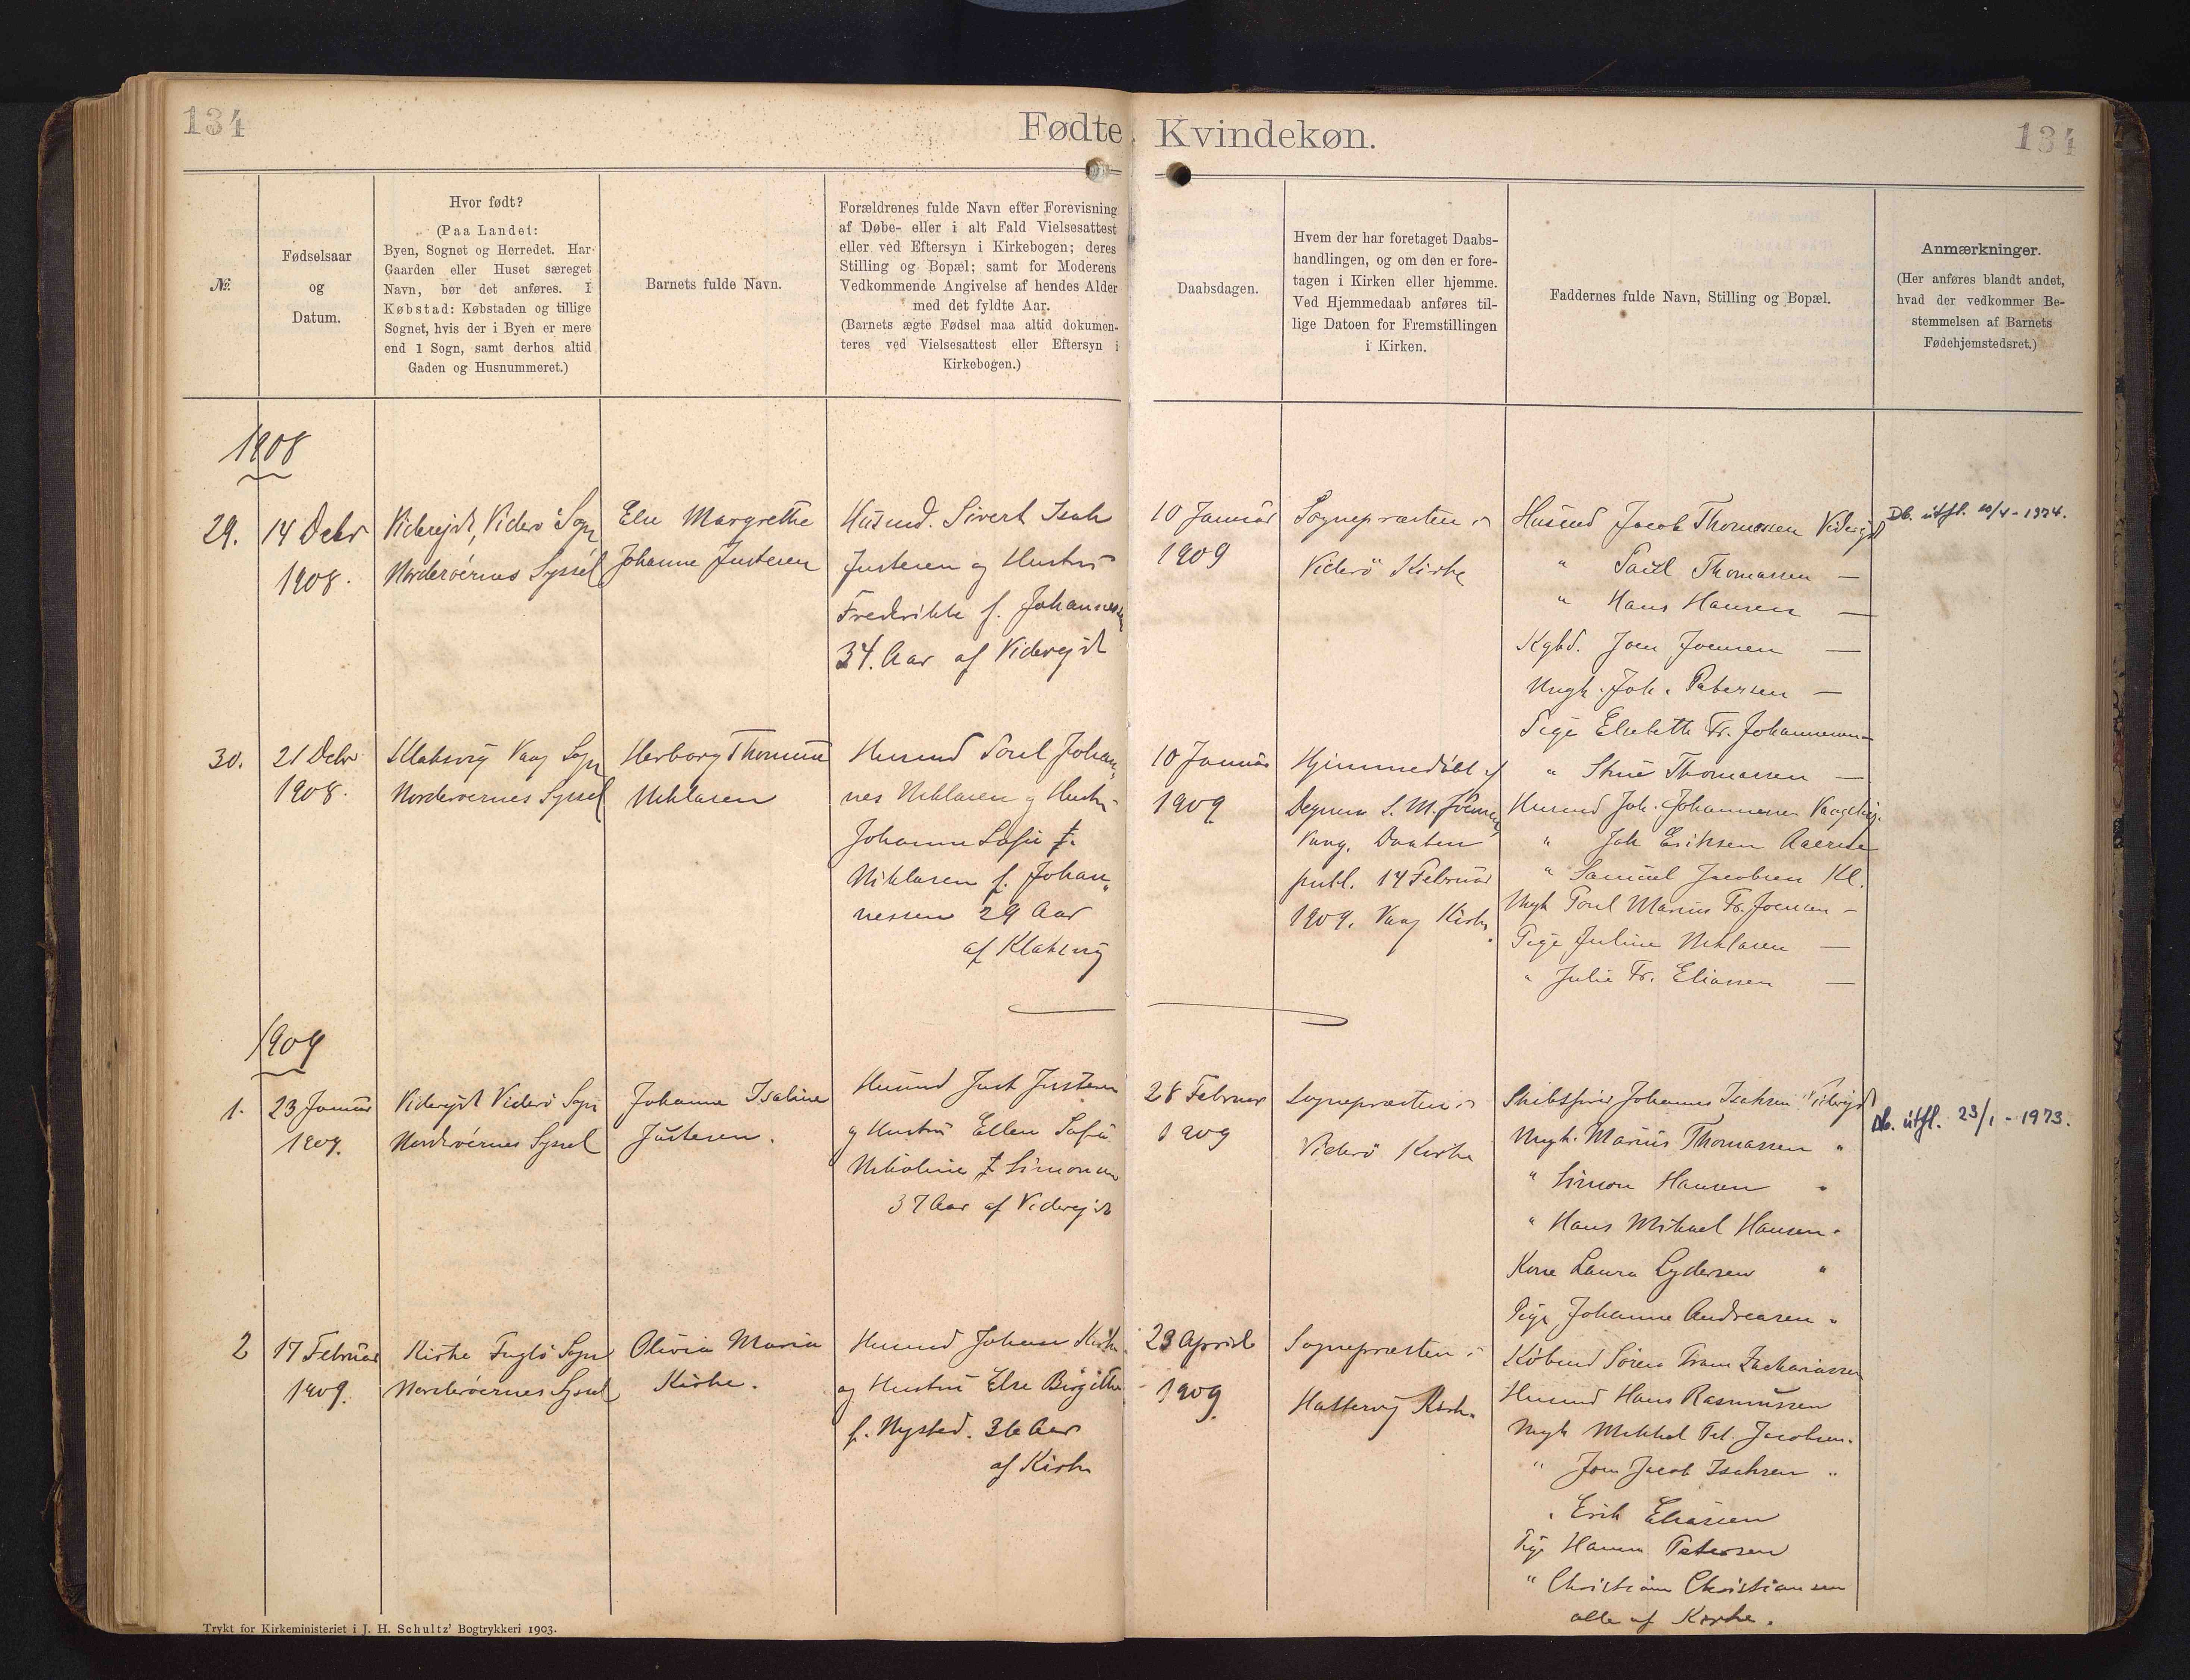 134
Fødte Kvindekøn.
134
№.
Fødselsaar
og
Datum.
Hvor født?
(Paa Landet:
Byen, Sognet og Herredet. Har
Gaarden eller Huset særeget
Navn, bør det anføres. I
Købstad: Købstaden og tillige
Sognet, hvis der i Byen er mere
end 1 Sogn, samt derhos altid
Gaden og Husnummeret.)
Barnets fulde Navn.
Forældrenes fulde Navn efter Forevisning
af Døbe- eller i alt Fald Vielsesattest
eller ved Eftersyn i Kirkebogen; deres
Stilling og Bopæl; samt for Moderens
Vedkommende Angivelse af hendes Alder
med det fyldte Aar.
(Barnets ægte Fødsel maa altid dokumen-
teres ved Vielsesattest eller Eftersyn i
Kirkebogen.)
Daabsdagen.
Hvem der har foretaget Daabs-
handlingen, og om den er fore-
tagen i Kirken eller hjemme.
Ved Hjemmedaab anføres til-
lige Datoen for Fremstillingen
i Kirken.
Faddernes fulde Navn, Stilling og Bopæl.
Anmærkninger.
(Her anføres blandt andet,
hvad der vedkommer Be-
stemmelsen af Barnets
Fødehjemstedsret.)
1908
29.
14 Decbr
1908.
Viderejde, Viderø Sogn
Norderøernes Syssel
Else Margrethe
Johanne Justesen
Husmd. Sivert Isak
Justesen og Hustru
Frederikke f. Johannesen
34. Aar af Viderejde
10 Januar
1909
Sognepræsten i
Viderø Kirke
Husmd Jacob Thomassen Viderejde
" Poul Thomassen —
" Hans Hansen —
Kgbd. Joen Joensen —
Ungk. Joh. Petersen —
Pige Elsebeth Fr. Johannesen —
" Thomassen —
Db. útfl. 10/4 - 1974.
30.
21 Decbr
1908.
Klaksvig Vaag Sogn
Norderøernes Syssel
Herborg Thomine
Niklasen
Husmd Poul Johan„
nes Niklasen og Hustru
Johanne Sofie f.
Niklasen f. Johan„
nessen 29 Aar
af Klaksvig
10 Januar
1909
Hjemmedøbt af
Degnen S. M. Joensen
Vaag. Daaben
publ. 14 Februar
1909. Vaag Kirke.
Husmd Joh. Johannesen
" Joh Eriksen
" Samuel Jacobsen Kl.
Ungk Poul Marius Fr. Joensen —
Pige Juline Niklasen —
" Julie Fr. Eliassen —
1909
1.
23 Januar
1909.
Viderejde Viderø Sogn
Norderøernes Syssel
Johanne Isaline
Justesen.
Husmd Just Justesen
og Hustru Ellen Sofie
Nikoline f Simonsen
37 Aar af Viderejde
28 Februar
1909
Sognepræsten i
Viderø Kirke
Skibsfører Johannes Isaksen Viderejde
Ungk. Marius Thomassen "
" Simon Hansen "
" Hans Mikael Hansen "
Kone Laura Lydersen "
Pige Johanne Andreasen "
Db. útfl. 23/1 - 1973.
2
17 Februar
1909.
Kirke Fuglø Sogn
Norderøernes Syssel
Olivia Maria
Kirke.
Husmd Johan Kirke
og Hustru Else Birgithe
f. Nysted. 36 Aar
af Kirke
23 April
1909
Sognepræsten i
Hattervig Kirke
Købmd Søren Fram Zachariassen
Husmd Hans Rasmussen
Ungk Mikkel Pet. Jacobsen.
" Joen Jacob Isaksen "
" Erik Eliasen
Pige Hanna Petersen
" Christiane Christiansen
alle af Kirke.
Trykt for Kirkeministeriet i J. H. Schultz' Bogtrykkeri 1903.